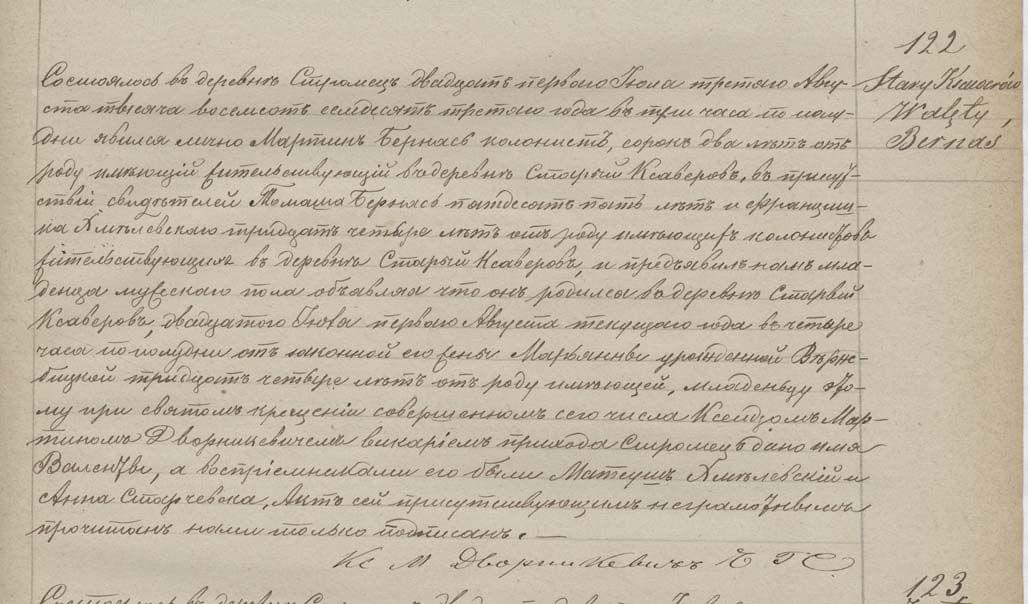 122
Stary Ksawerów
Walęty,
Bernas
Состоялось въ деревнѣ Стромецъ двадцать перваго Іюла третяго Авгу-
ста тысяча восемсотъ семдесятъ третяго года въ три часа по полу-
дни явился лично Мартинъ Бернась колонистъ, сорокъ два лѣтъ отъ
роду имѣющій жительствующій въ деревнѣ Старый Ксаверовъ, въ присут-
ствіи свидѣтелей Томаша Бернась пятдесятъ пять лѣтъ и Франциш-
ка Хмѣлевскаго тридцать четыре лѣтъ отъ роду имѣющихъ колонистовъ
жительствующихъ въ деревнѣ Старый Ксаверовъ, и предъявилъ намъ мла-
денца мужескаго пола объявляя что онъ родился въ деревнѣ Старый
Ксаверовъ, двадцатого Іюля перваго Августа текущаго года въ четыре
часа по полудни отъ законной его жены Марьянны урожденной
бицкой тридцать четыре лѣтъ отъ роду имѣющей, младенцу это-
му при святомъ крещеніи совершенномъ сего числа Ксендзомъ Мар-
тиномъ Дворникевичемъ викаріемъ прихода Стромецъ дано имя
Валентый, а воспріемниками его были Матеушъ Хмѣлевскій и
Анна Старчевска, Актъ сей присутствующимъ неграмотнымъ
прочитанъ нами только подписанъ. —
Кс М Дворникевичъ
123